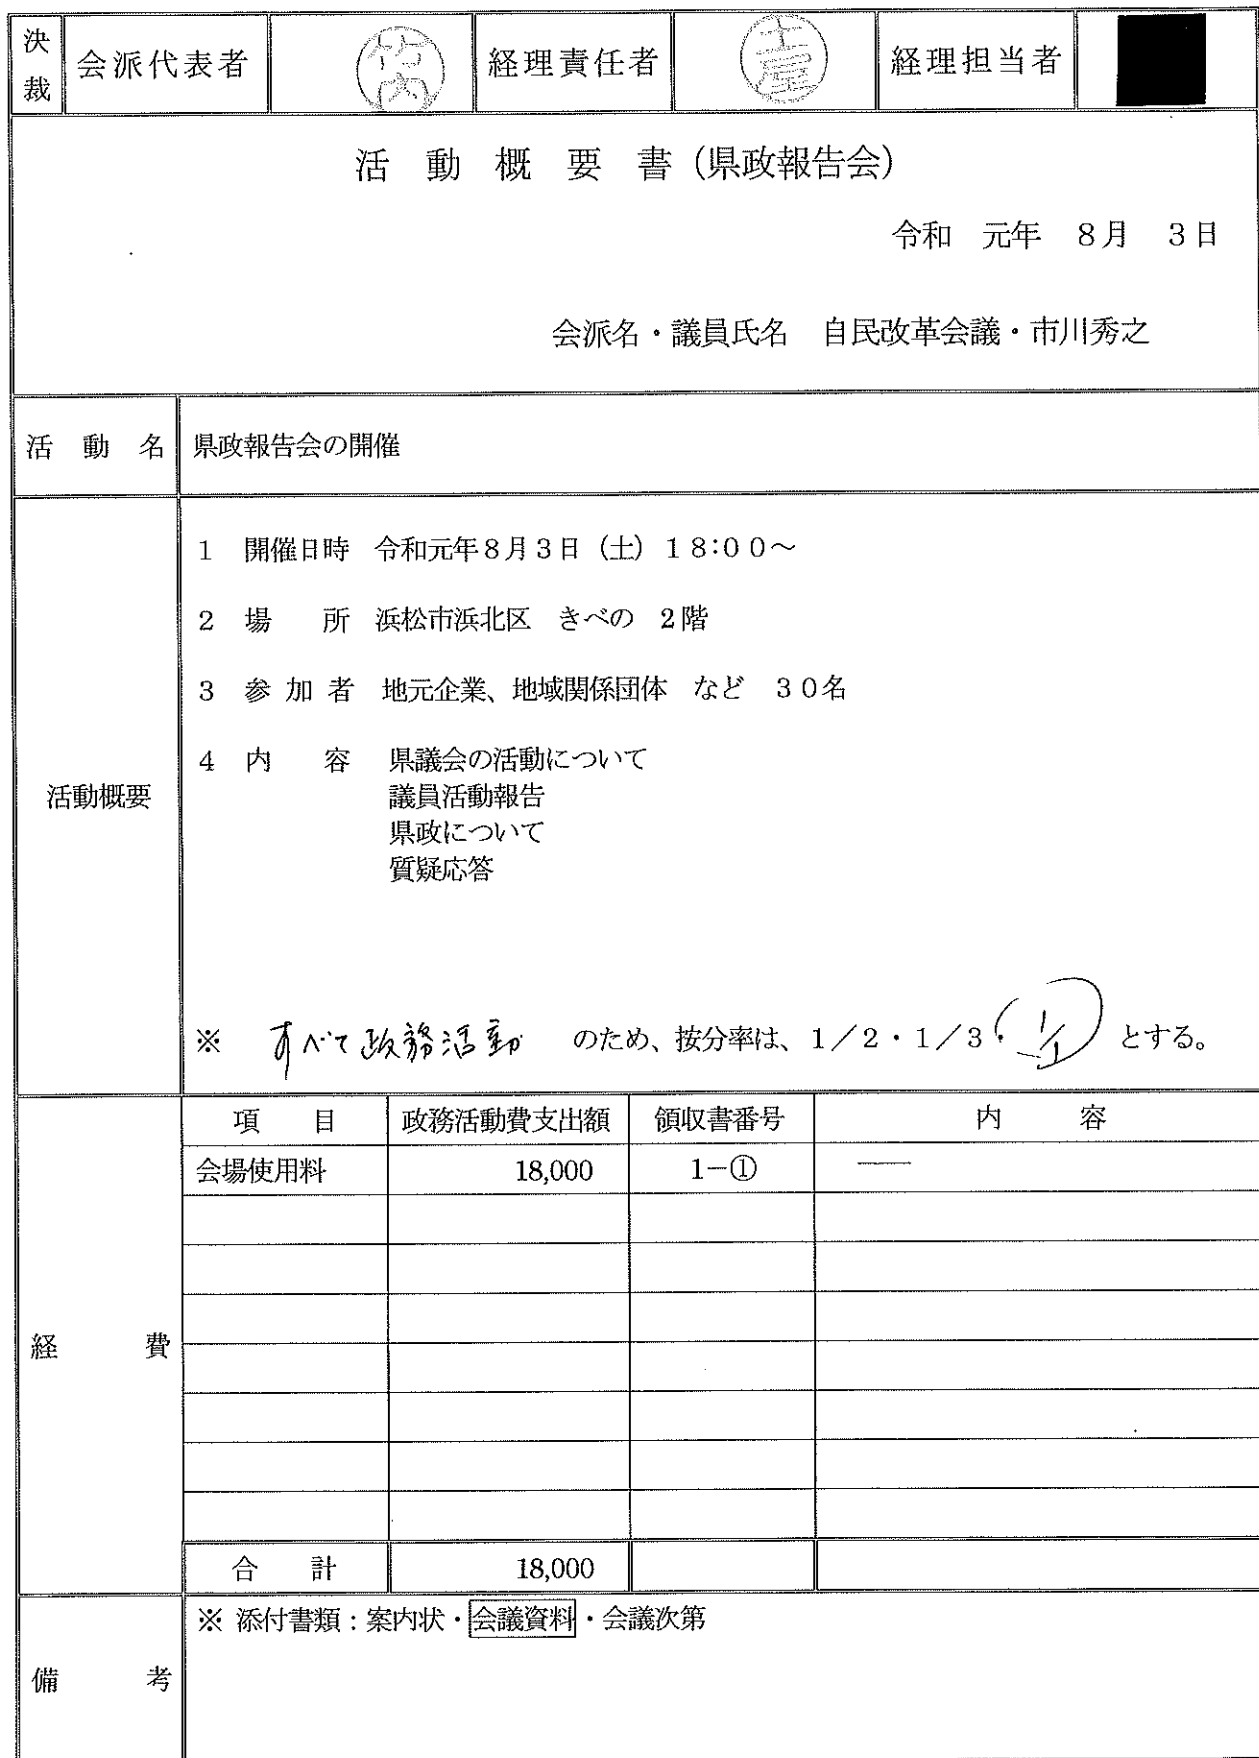 決裁 会派代表者 竹内 経理責任者 土屋 経理担当者
活動概要書(県政報告会)
令和 元年 8月 3日
会派名・議員氏名 自民改革会議・市川秀之
活動名 県政報告会の開催
活動概要
1 開催日時 令和元年8月3日(土)18:00~
2 場所 浜松市浜北区 きべの 2階
3 参加者 地元企業、地域関係団体 など 30名
4 内容 県議会の活動について
議員活動報告
県政について
質疑応答
※ すべて政務活動 のため、按分率は、1/2・1/3・1/1 とする。
経費
項目 政務活動費支出額 領収書番号 内容
会場使用料 18,000 1-① ―
合計 18,000
備考
※ 添付書類:案内状・会議資料・会議次第